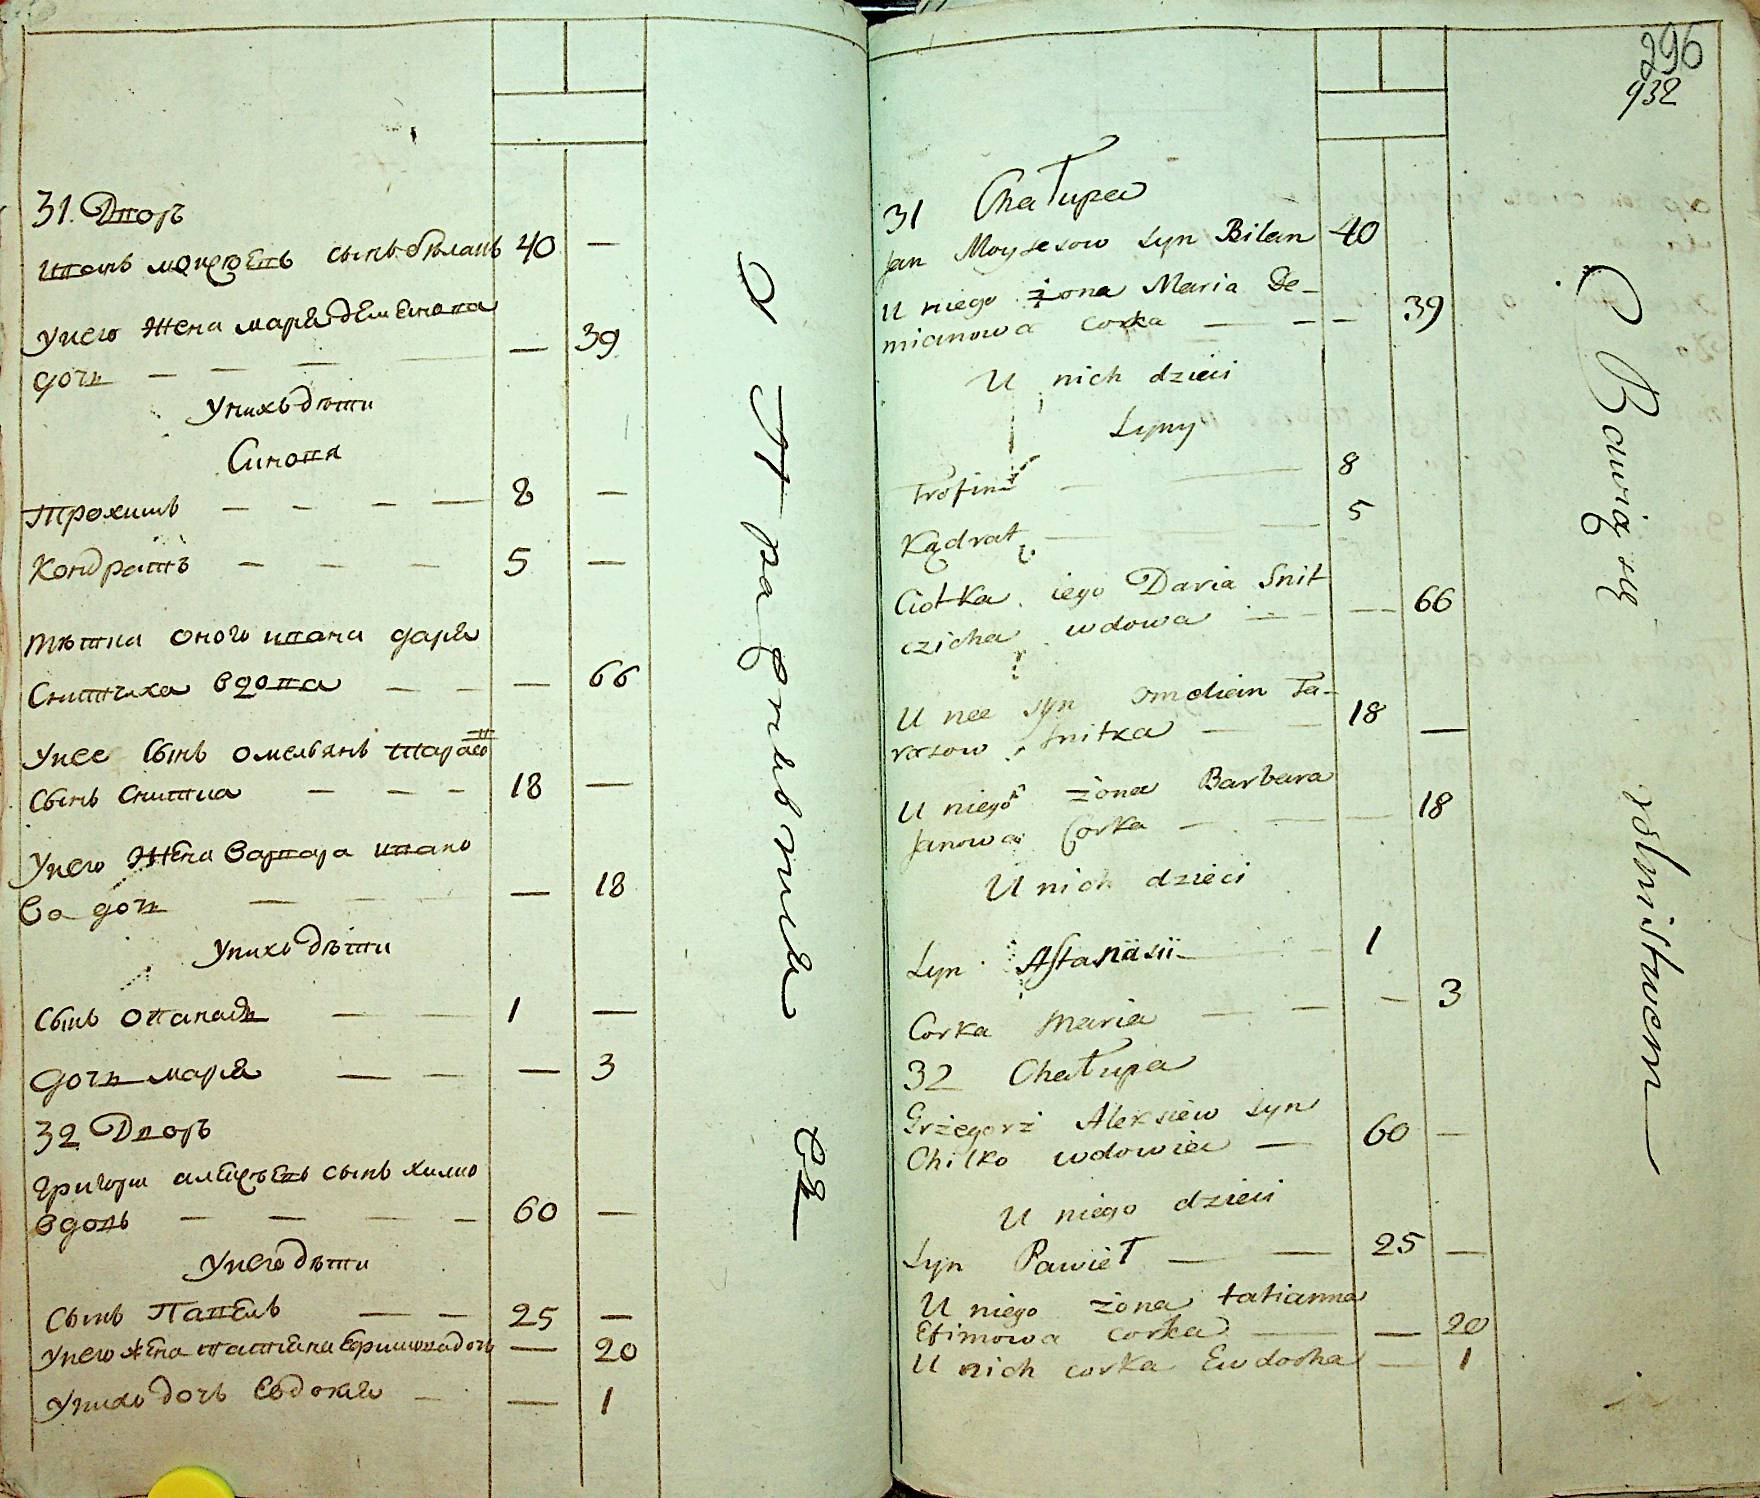 31. Дворъ
иванъ моисѣевъ сынъ бѣланъ 40 —
унего жена марѣя деменова
дочь — — — — 39
унихъ дѣти
Синовя
Трохимъ — — — — 8 —
Кондратъ — — — 5 —
тѣтка оного ивана дарѣя
Снитчиха вдова — — — 66
унее сынъ омельянъ тарасов
сынъ снитка — — — 18 —
унего жена варвара ивано
ва дочь — — — — 18
унихъ дѣти
сынъ опанасъ — — 1 —
дочь марѣя — — — 3
32 Дворъ
григори алексѣевъ сынъ хилко
вдовъ — — — — 60 —
унего дѣти
сынъ Павелъ — — 25 —
унего жена татѣяна ефимова дочь — 20
унихъ дочь Евдокѣя — — 1
О Пра
ся
296
932
31 Chałupa
Jan Moysesow syn Bilan 40
U niego żona Maria De-
mianowa corka — — — 39
U nich dzieci
Syny
Trofim — — 8
Kądrat — — 5
Ciotka iego Daria Snit
czicha wdowa — — — 66
U nee syn omelian Ta-
rasow snitka — — 18 —
U niego żona Barbara
Janowa Corka — — — 18
U nich dzieci
Syn Aftanasii — — 1
Corka Maria — — — 3
32 Chałupa
Grzegorz Alexsiew syn
Chilko wdowiec — 60 —
U niego dzieci
Syn Pawieł — — 25 —
U niego żona tatianna
Efimowa corka — — 20
U nich corka Ewdocha — 1
Bawią się rolnistwem —